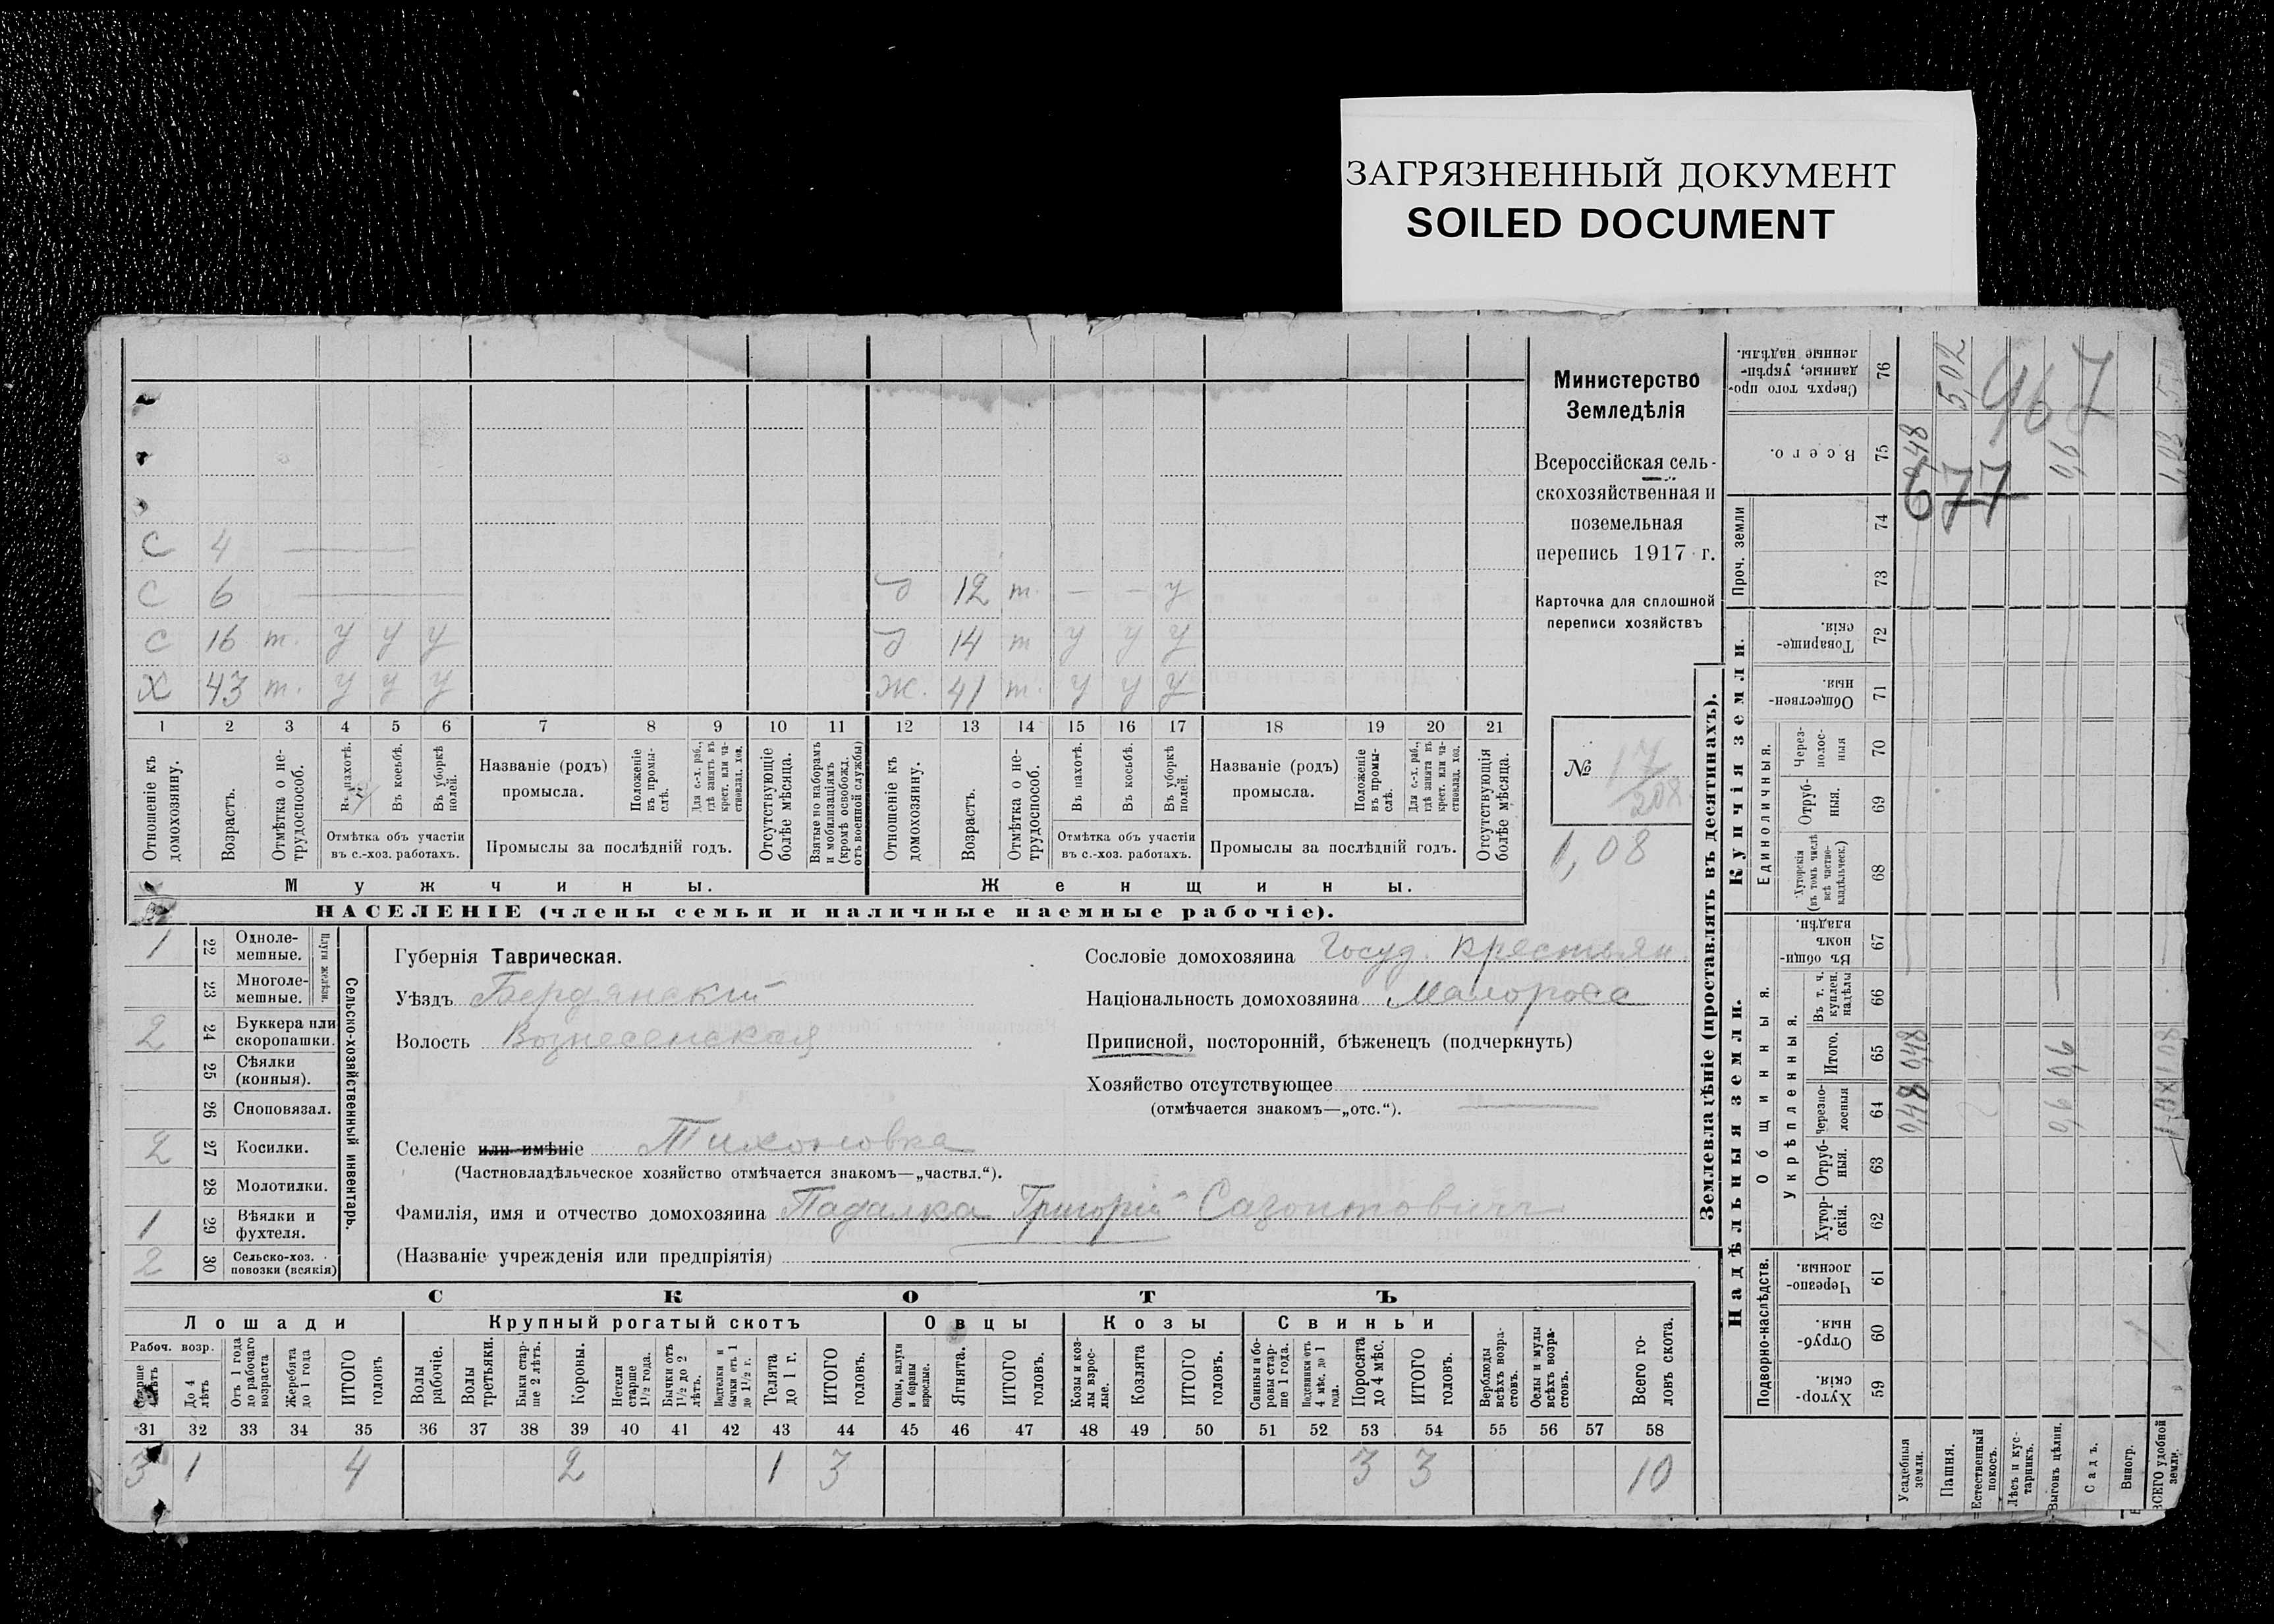 ЗАГРЯЗНЕННЫЙ ДОКУМЕНТ
SOILED DOCUMENT
Министерство
Земледѣлія
Всероссійская сель-
скохозяйственная и
поземельная
перепись 1917 г.
Карточка для сплошной
переписи хозяйствъ
№ 17
1,08
С 4
С 6 д 12 т. — — у
С 16 т. у у у д 14 т у у у
Х 43 т. у у у ж. 41 т. у у у
1 2 3 4 5 6 7 8 9 10 11 12 13 14 15 16 17 18 19 20 21
Отношеніе къ домохозяину.
Возрастъ.
Отмѣтка о не-трудоспособ.
Въ пахотѣ.
Въ косьбѣ.
Въ уборкѣ полей.
Отмѣтка объ участіи
въ с.-хоз. работахъ.
Названіе (родъ)
промысла.
Положеніе въ промы-слѣ.
Для с.-х. раб., гдѣ занятъ въ крест. или ча-стновлад. хоз.
Промыслы за послѣдній годъ.
Отсутствующіе болѣе мѣсяца.
Взятые по наборамъ и мобилизаціямъ (кромѣ освобожд. отъ военной службы)
Отношеніе къ домохозяину.
Возрастъ.
Отмѣтка о не-трудоспособ.
Въ пахотѣ.
Въ косьбѣ.
Въ уборкѣ полей.
Отмѣтка объ участіи
въ с.-хоз. работахъ.
Названіе (родъ)
промысла.
Положеніе въ промы-слѣ.
Для с.-х. раб., гдѣ занята въ крест. или ча-стновлад. хоз.
Промыслы за послѣдній годъ.
Отсутствующія болѣе мѣсяца.
Мужчины. Женщины.
НАСЕЛЕНІЕ (члены семьи и наличные наемные рабочіе).
1 22 Одноле-мешные.
23 Многоле-мешные.
Плуги желѣзн.
2 24 Буккера или скоропашки.
25 Сѣялки (конныя).
26 Сноповязал.
2 27 Косилки.
28 Молотилки.
1 29 Вѣялки и фухтеля.
2 30 Сельско-хоз. повозки (всякія)
Сельско-хозяйственный инвентарь.
Губернія Таврическая.
Уѣздъ Бердянский
Волость Вознесенская
Селеніе или имѣніе Тихоновка
(Частновладѣльческое хозяйство отмѣчается знакомъ—„частвл.“).
Фамилія, имя и отчество домохозяина Падалка Григорій Сазонтовичъ
(Названіе учрежденія или предпріятія)
Сословіе домохозяина Госуд. Крестьян
Національность домохозяина Малоросс
Приписной, посторонній, бѣженецъ (подчеркнуть)
Хозяйство отсутствующее
(отмѣчается знакомъ—„отс.“).
СКОТЪ
Лошади Крупный рогатый скотъ Овцы Козы Свиньи
Рабоч. возр.
Старше 4 лѣтъ
До 4 лѣтъ
Отъ 1 года до рабочаго возраста
Жеребята до 1 года
ИТОГО головъ
Волы рабочіе.
Волы третьяки.
Быки стар-ше 2 лѣтъ.
Коровы.
Нетели старше 1½ года.
Бычки отъ 1½ до 2 лѣтъ.
Подтелки и бычки отъ 1 до 1½ г.
Телята до 1 г.
ИТОГО головъ.
Овцы, валухи и бараны взрослые.
Ягнята.
ИТОГО головъ.
Козы и коз-лы взрос-лые.
Козлята
ИТОГО головъ.
Свиньи и бо-ровы стар-ше 1 года.
Подсвинки отъ 4 мѣс. до 1 года.
Поросята до 4 мѣс.
ИТОГО головъ.
Верблюды всѣхъ возра-стовъ.
Ослы и мулы всѣхъ возра-стовъ.
Всего го-ловъ скота.
31 32 33 34 35 36 37 38 39 40 41 42 43 44 45 46 47 48 49 50 51 52 53 54 55 56 57 58
3 1 4 2 1 3 3 3 10
Землевладѣніе (проставлять въ десятинахъ).
Надѣльныя земли. Купчія земли.
Подворно-наслѣдств.
Общинныя.
Укрѣпленныя.
Единоличныя.
Проч. земли
Сверхъ того про-данные, укрѣп-ленные надѣлы. 76
Всего. 75
74
73
Товарище-скія. 72
Обществен-ныя. 71
Через-полос-ныя 70
Отруб-ныя. 69
Хуторскія (въ томъ числѣ всѣ частно-владѣльческ.) 68
Въ общин-номъ владѣн. 67
Въ т. ч. куплен. надѣлы 66
Итого. 65
Черезпо-лосныя 64
Отруб-ныя. 63
Хутор-скія. 62
Черезпо-лосныя. 61
Отруб-ныя. 60
Хутор-скія. 59
Усадебныя земли.
Пашня.
Естественный покосъ.
Лѣсъ и кус-тарникъ.
Выгонъ цѣлин.
Садъ.
Виногр.
ВСЕГО удобной земли.
0,48 0,48 0,48
5,02
0,6 0,6 0,6
967
677
1,08